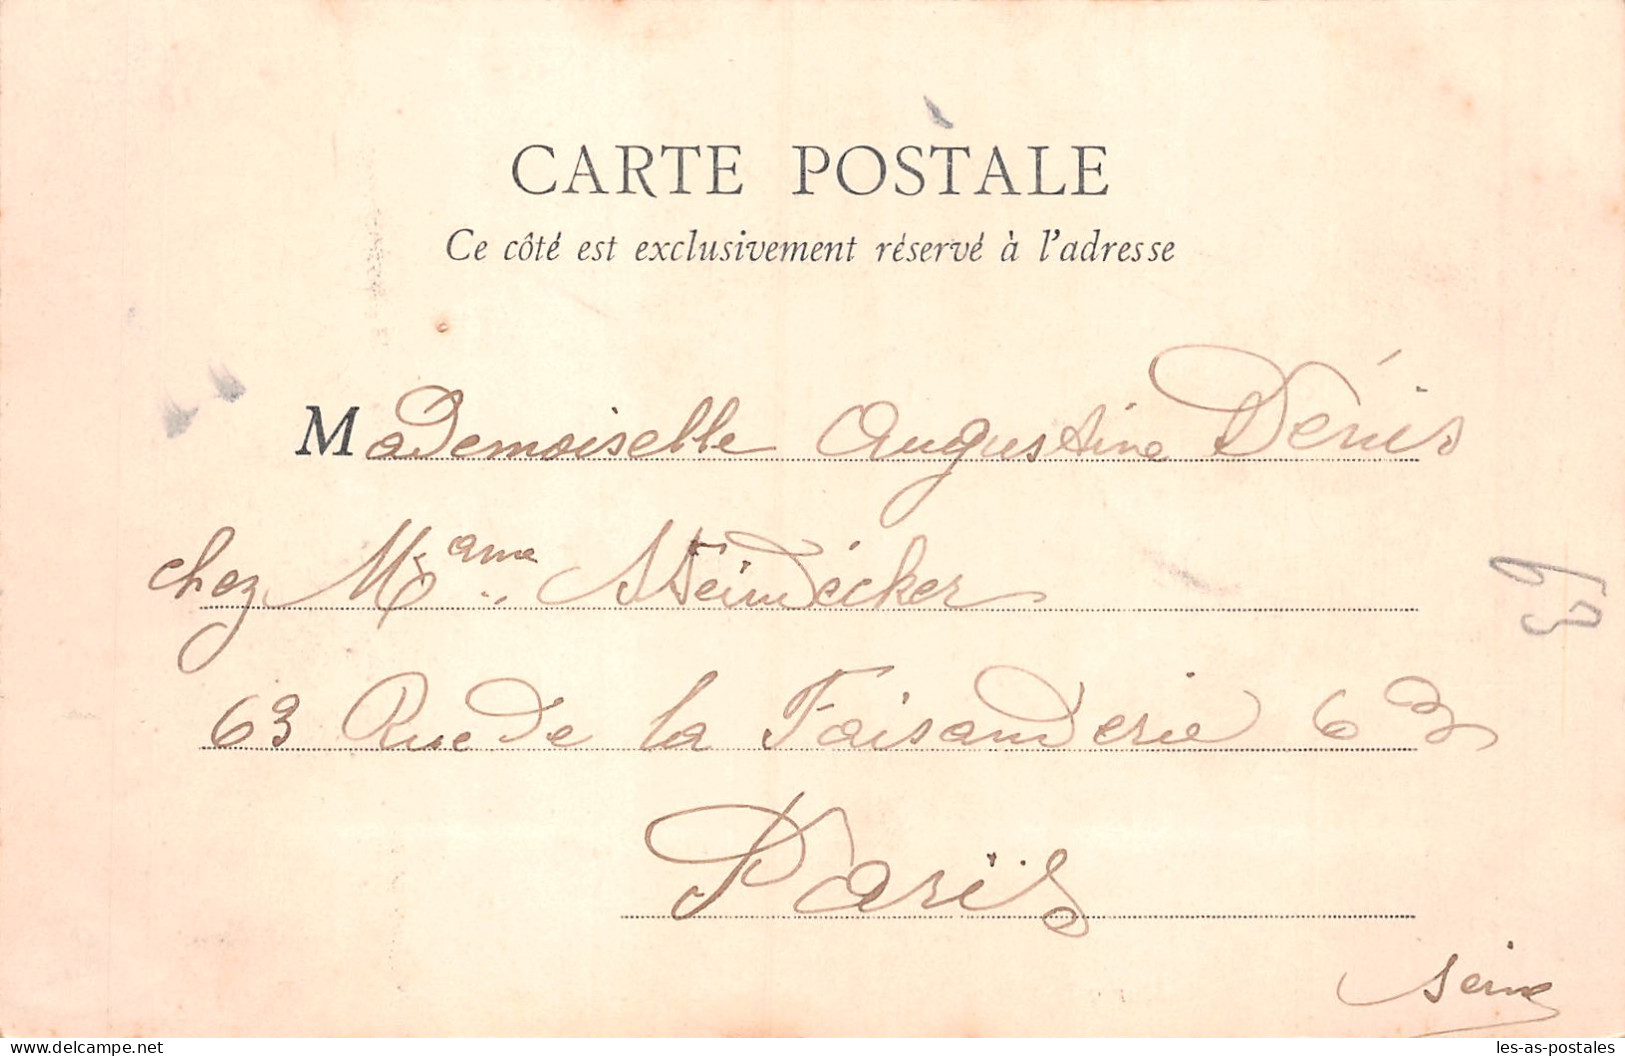 CARTE POSTALE
Ce côté est exclusivement réservé à l'adresse
Mademoiselle Augustine Dénis
chez Mame Steindécker
63 Rue de la Faisanderie 63
Paris
Seine
les-as-postales